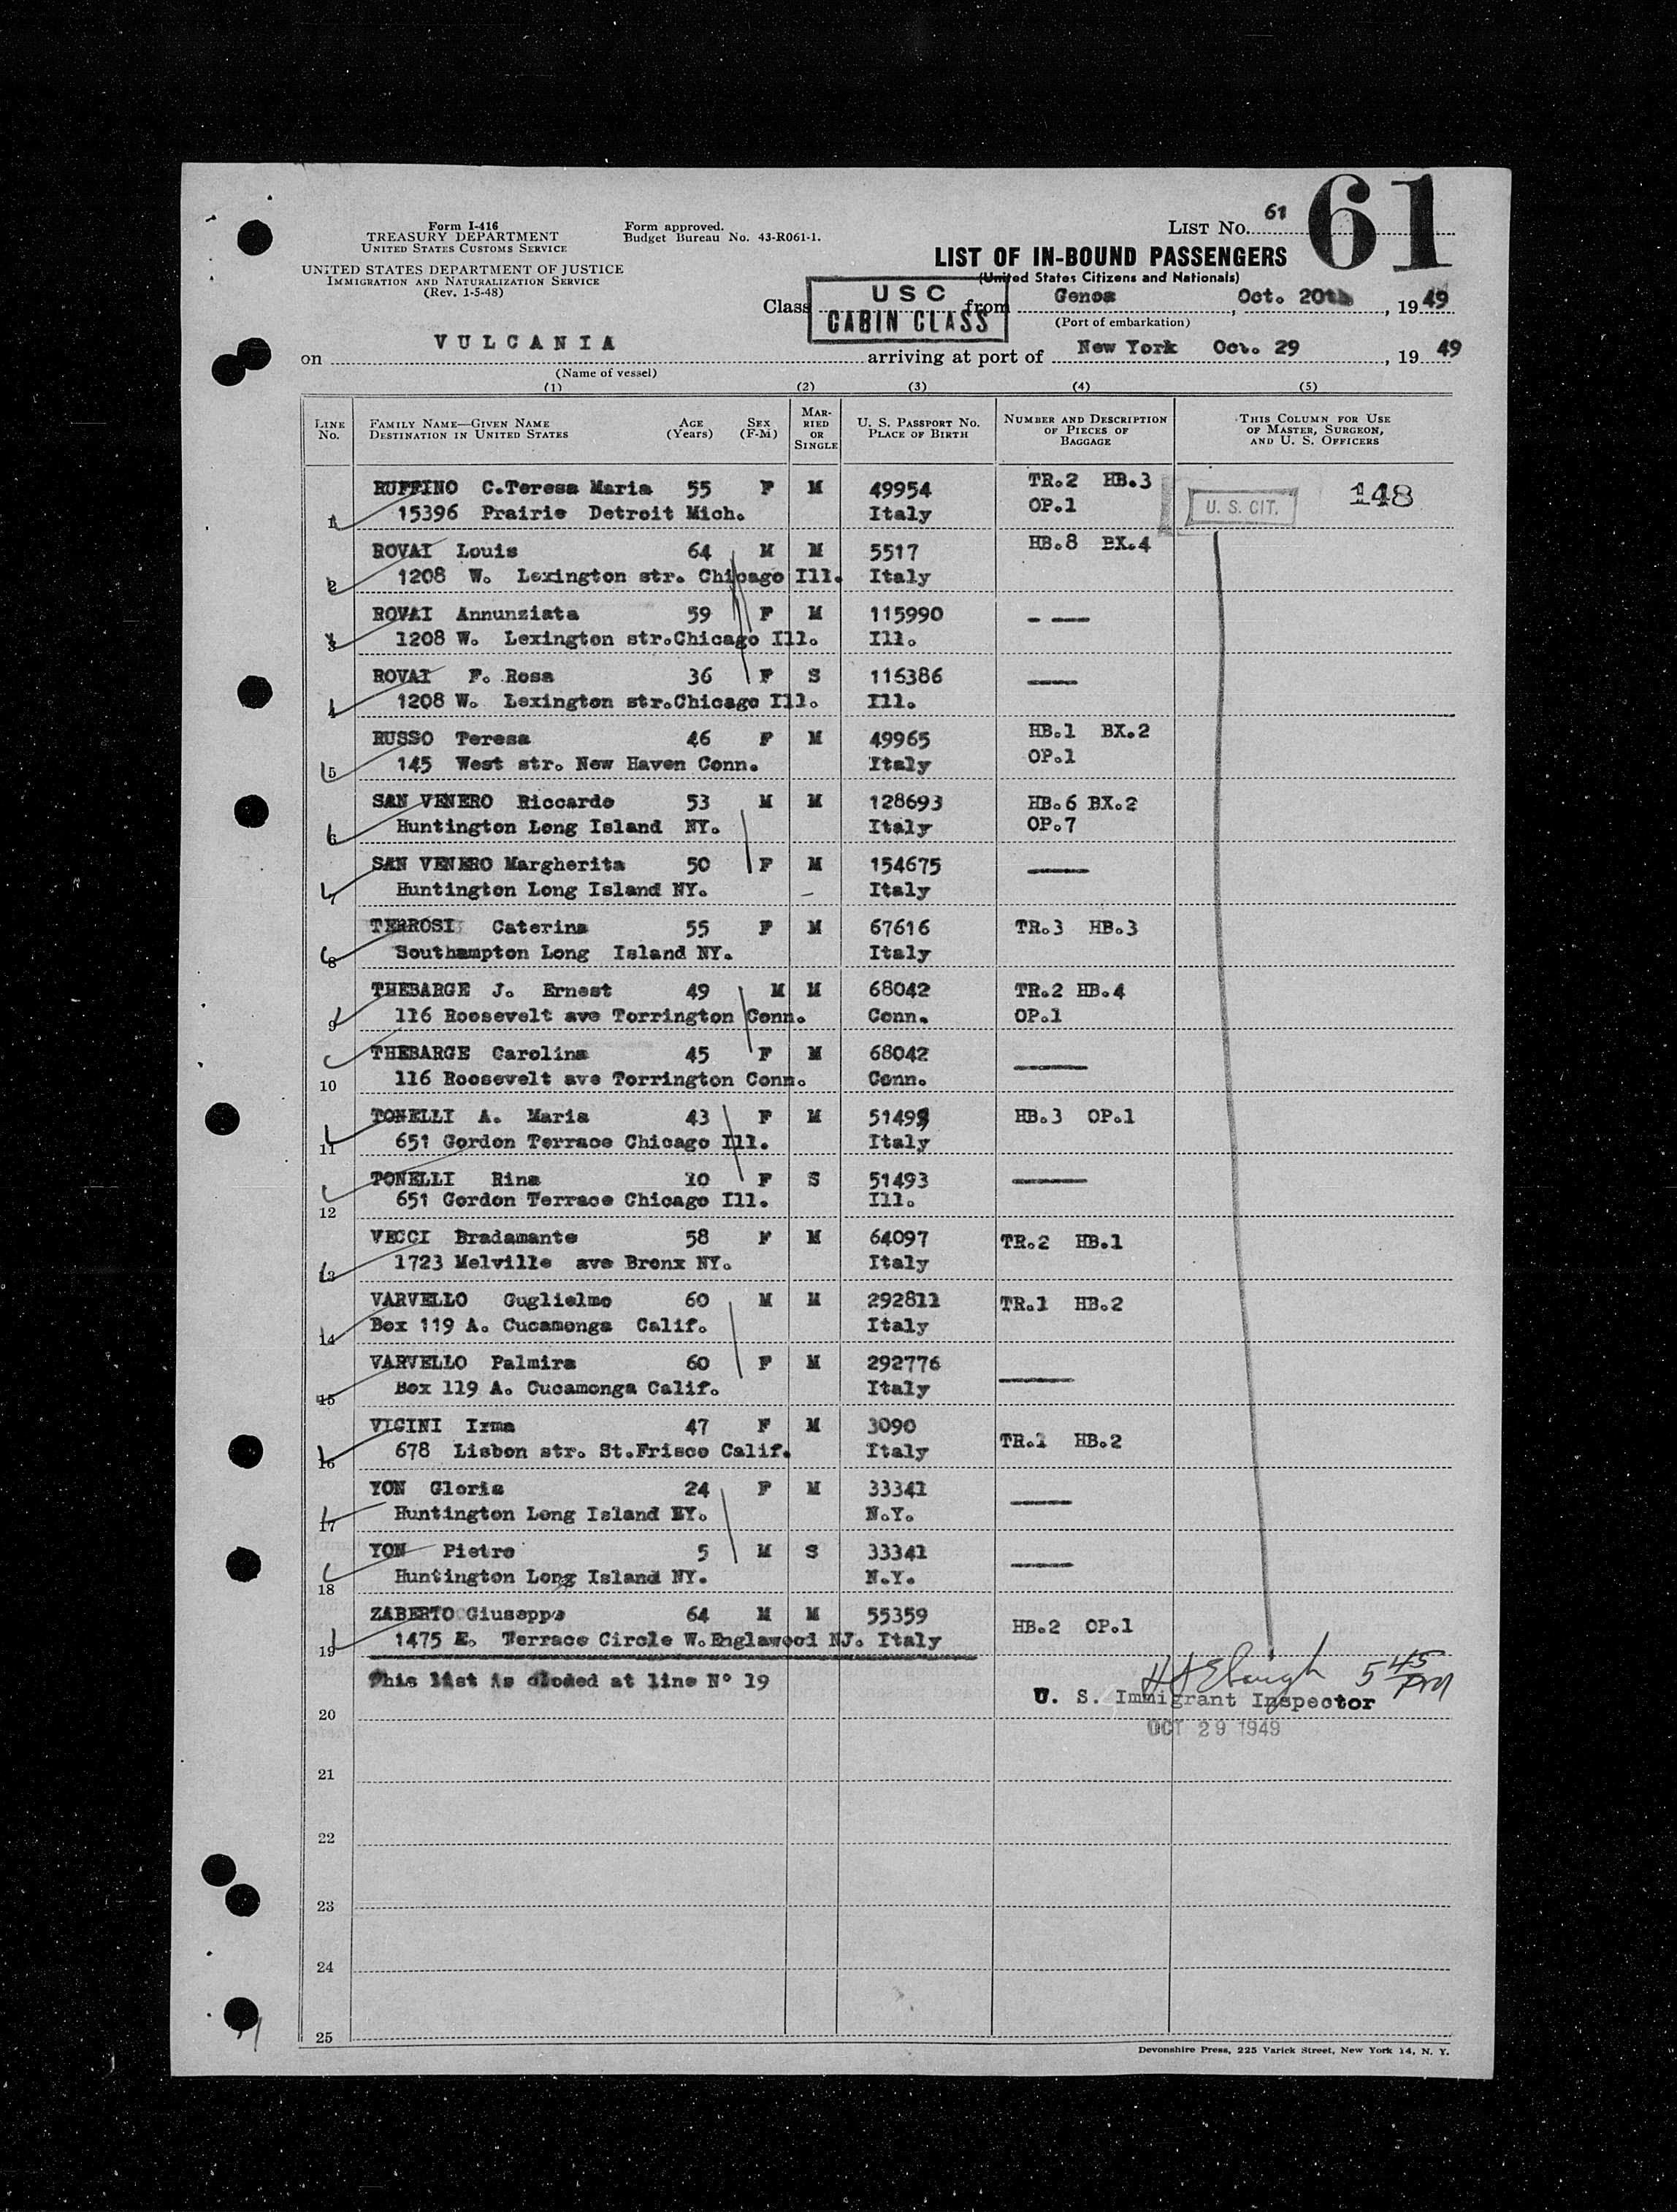 61
Form I-416
TREASURY DEPARTMENT
UNITED STATES CUSTOMS SERVICE
Form approved.
Budget Bureau No. 43-R061-1.
LIST NO. 61
UNITED STATES DEPARTMENT OF JUSTICE
IMMIGRATION AND NATURALIZATION SERVICE
(Rev. 1-5-48)
LIST OF IN-BOUND PASSENGERS
(United States Citizens and Nationals)
Class USC CABIN CLASS from Genoa, Oct. 20th, 1949
(Port of embarkation)
on VULCANIA arriving at port of New York Oct. 29, 1949
(Name of vessel)
(1) (2) (3) (4) (5)
LINE NO. FAMILY NAME—GIVEN NAME DESTINATION IN UNITED STATES AGE (Years) SEX (F-M) MARRIED OR SINGLE U. S. PASSPORT NO. PLACE OF BIRTH NUMBER AND DESCRIPTION OF PIECES OF BAGGAGE THIS COLUMN FOR USE OF MASTER, SURGEON, AND U. S. OFFICERS
RUFFINO C.Teresa Maria 55 F M 49954 TR.2 HB.3
1 15396 Prairie Detroit Mich. Italy OP.1 U. S. CIT. 148
ROVAI Louis 64 M M 5517 HB.8 BX.4
2 1208 W. Lexington str. Chicago Ill. Italy
ROVAI Annunziata 59 F M 115990 - —
3 1208 W. Lexington str.Chicago Ill. Ill.
ROVAI F. Rosa 36 F S 116386 —
4 1208 W. Lexington str.Chicago Ill. Ill.
RUSSO Teresa 46 F M 49965 HB.1 BX.2
5 145 West str. New Haven Conn. Italy OP.1
SAN VENERO Riccardo 53 M M 128693 HB.6 BX.2
6 Huntington Long Island NY. Italy OP.7
SAN VENERO Margherita 50 F M 154675 —
7 Huntington Long Island NY. – Italy
TERROSI Caterina 55 F M 67616 TR.3 HB.3
8 Southampton Long Island NY. Italy
THEBARGE J. Ernest 49 M M 68042 TR.2 HB.4
9 116 Roosevelt ave Torrington Conn. Conn. OP.1
THEBARGE Carolina 45 F M 68042 —
10 116 Roosevelt ave Torrington Conn. Conn.
TONELLI A. Maria 43 F M HB.3 OP.1
11 651 Gordon Terrace Chicago Ill. Italy
TONELLI Rina 10 F S 51493 —
12 651 Gordon Terrace Chicago Ill. Ill.
VECCI Bradamante 58 F M 64097 TR.2 HB.1
13 1723 Melville ave Bronx NY. Italy
VARVELLO Guglielmo 60 M M 292811 TR.1 HB.2
14 Box 119 A. Cucamonga Calif. Italy
VARVELLO Palmira 60 F M 292776 —
15 Box 119 A. Cucamonga Calif. Italy
VIGINI Irma 47 F M 3090 TR.1 HB.2
16 678 Lisbon str. St.Frisco Calif. Italy
YON Gloria 24 F M 33341 —
17 Huntington Long Island NY. N.Y.
YON Pietro 5 M S 33341 —
18 Huntington Long Island NY. N.Y.
ZABERTO Giuseppe 64 M M 55359 HB.2 OP.1
19 1475 E. Terrace Circle W.Englawood NJ. Italy
This list is closed at line N° 19
5 45 PM
U. S. Immigrant Inspector
20
OCT 29 1949
21
22
23
24
25
Devonshire Press, 225 Varick Street, New York 14, N. Y.